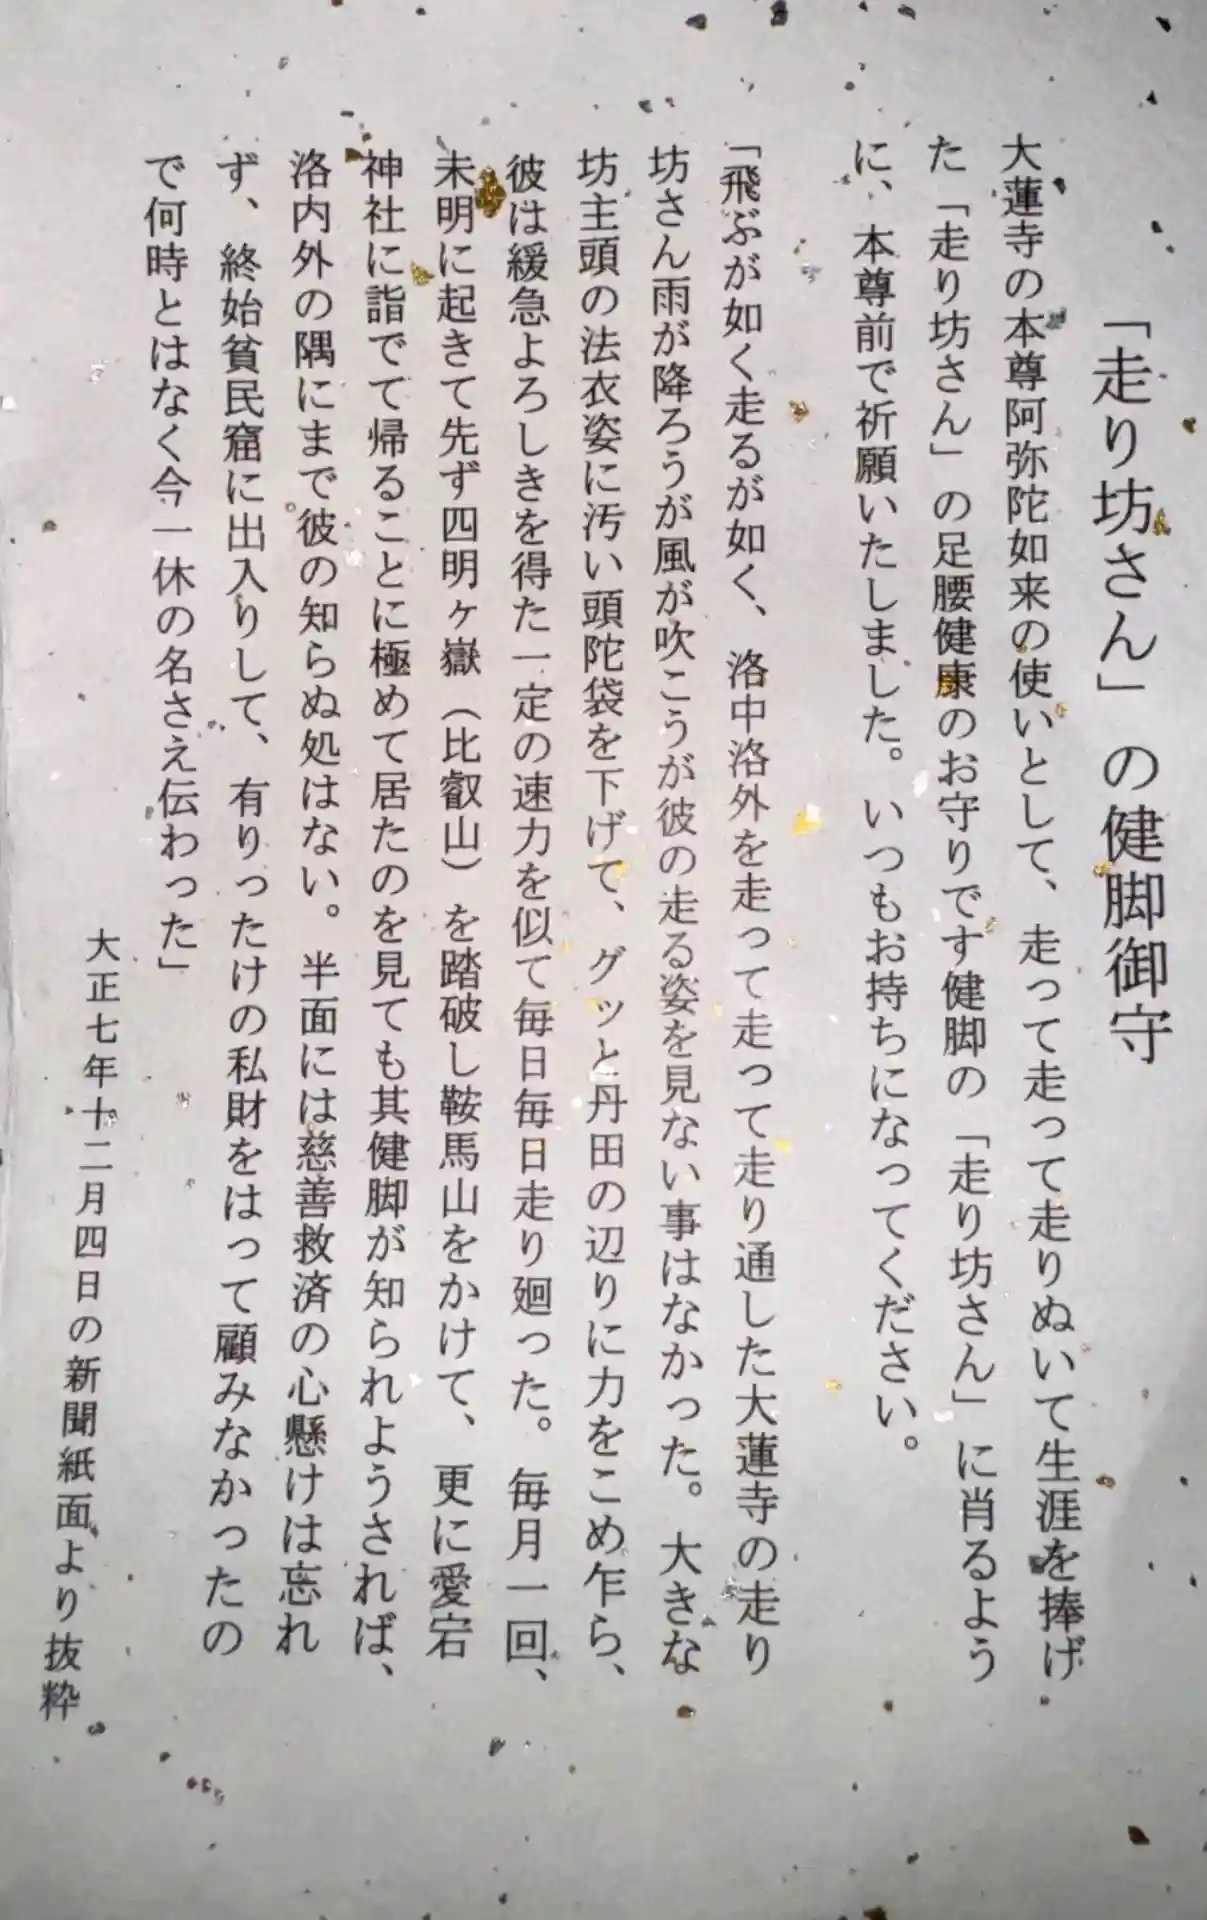 「走り坊さん」の健脚御守
大蓮寺の本尊阿弥陀如来の使いとして、走って走って走りぬいて生涯を捧げ
た「走り坊さん」の足腰健康のお守りです健脚の「走り坊さん」に肖るよう
に、本尊前で祈願いたしました。いつもお持ちになってください。
「飛ぶが如く走るが如く、洛中洛外を走って走って走り通した大蓮寺の走り
坊さん雨が降ろうが風が吹こうが彼の走る姿を見ない事はなかった。大きな
坊主頭の法衣姿に汚い頭陀袋を下げて、グッと丹田の辺りに力をこめ乍ら、
彼は緩急よろしきを得た一定の速力を似て毎日毎日走り廻った。毎月一回、
未明に起きて先ず四明ヶ嶽（比叡山）を踏破し鞍馬山をかけて、更に愛宕
神社に詣でて帰ることに極めて居たのを見ても其健脚が知られようされば、
洛内外の隅にまで彼の知らぬ処はない。半面には慈善救済の心懸けは忘れ
ず、終始貧民窟に出入りして、有りったけの私財をはって顧みなかったの
で何時とはなく今一休の名さえ伝わった」
大正七年十二月四日の新聞紙面より抜粋